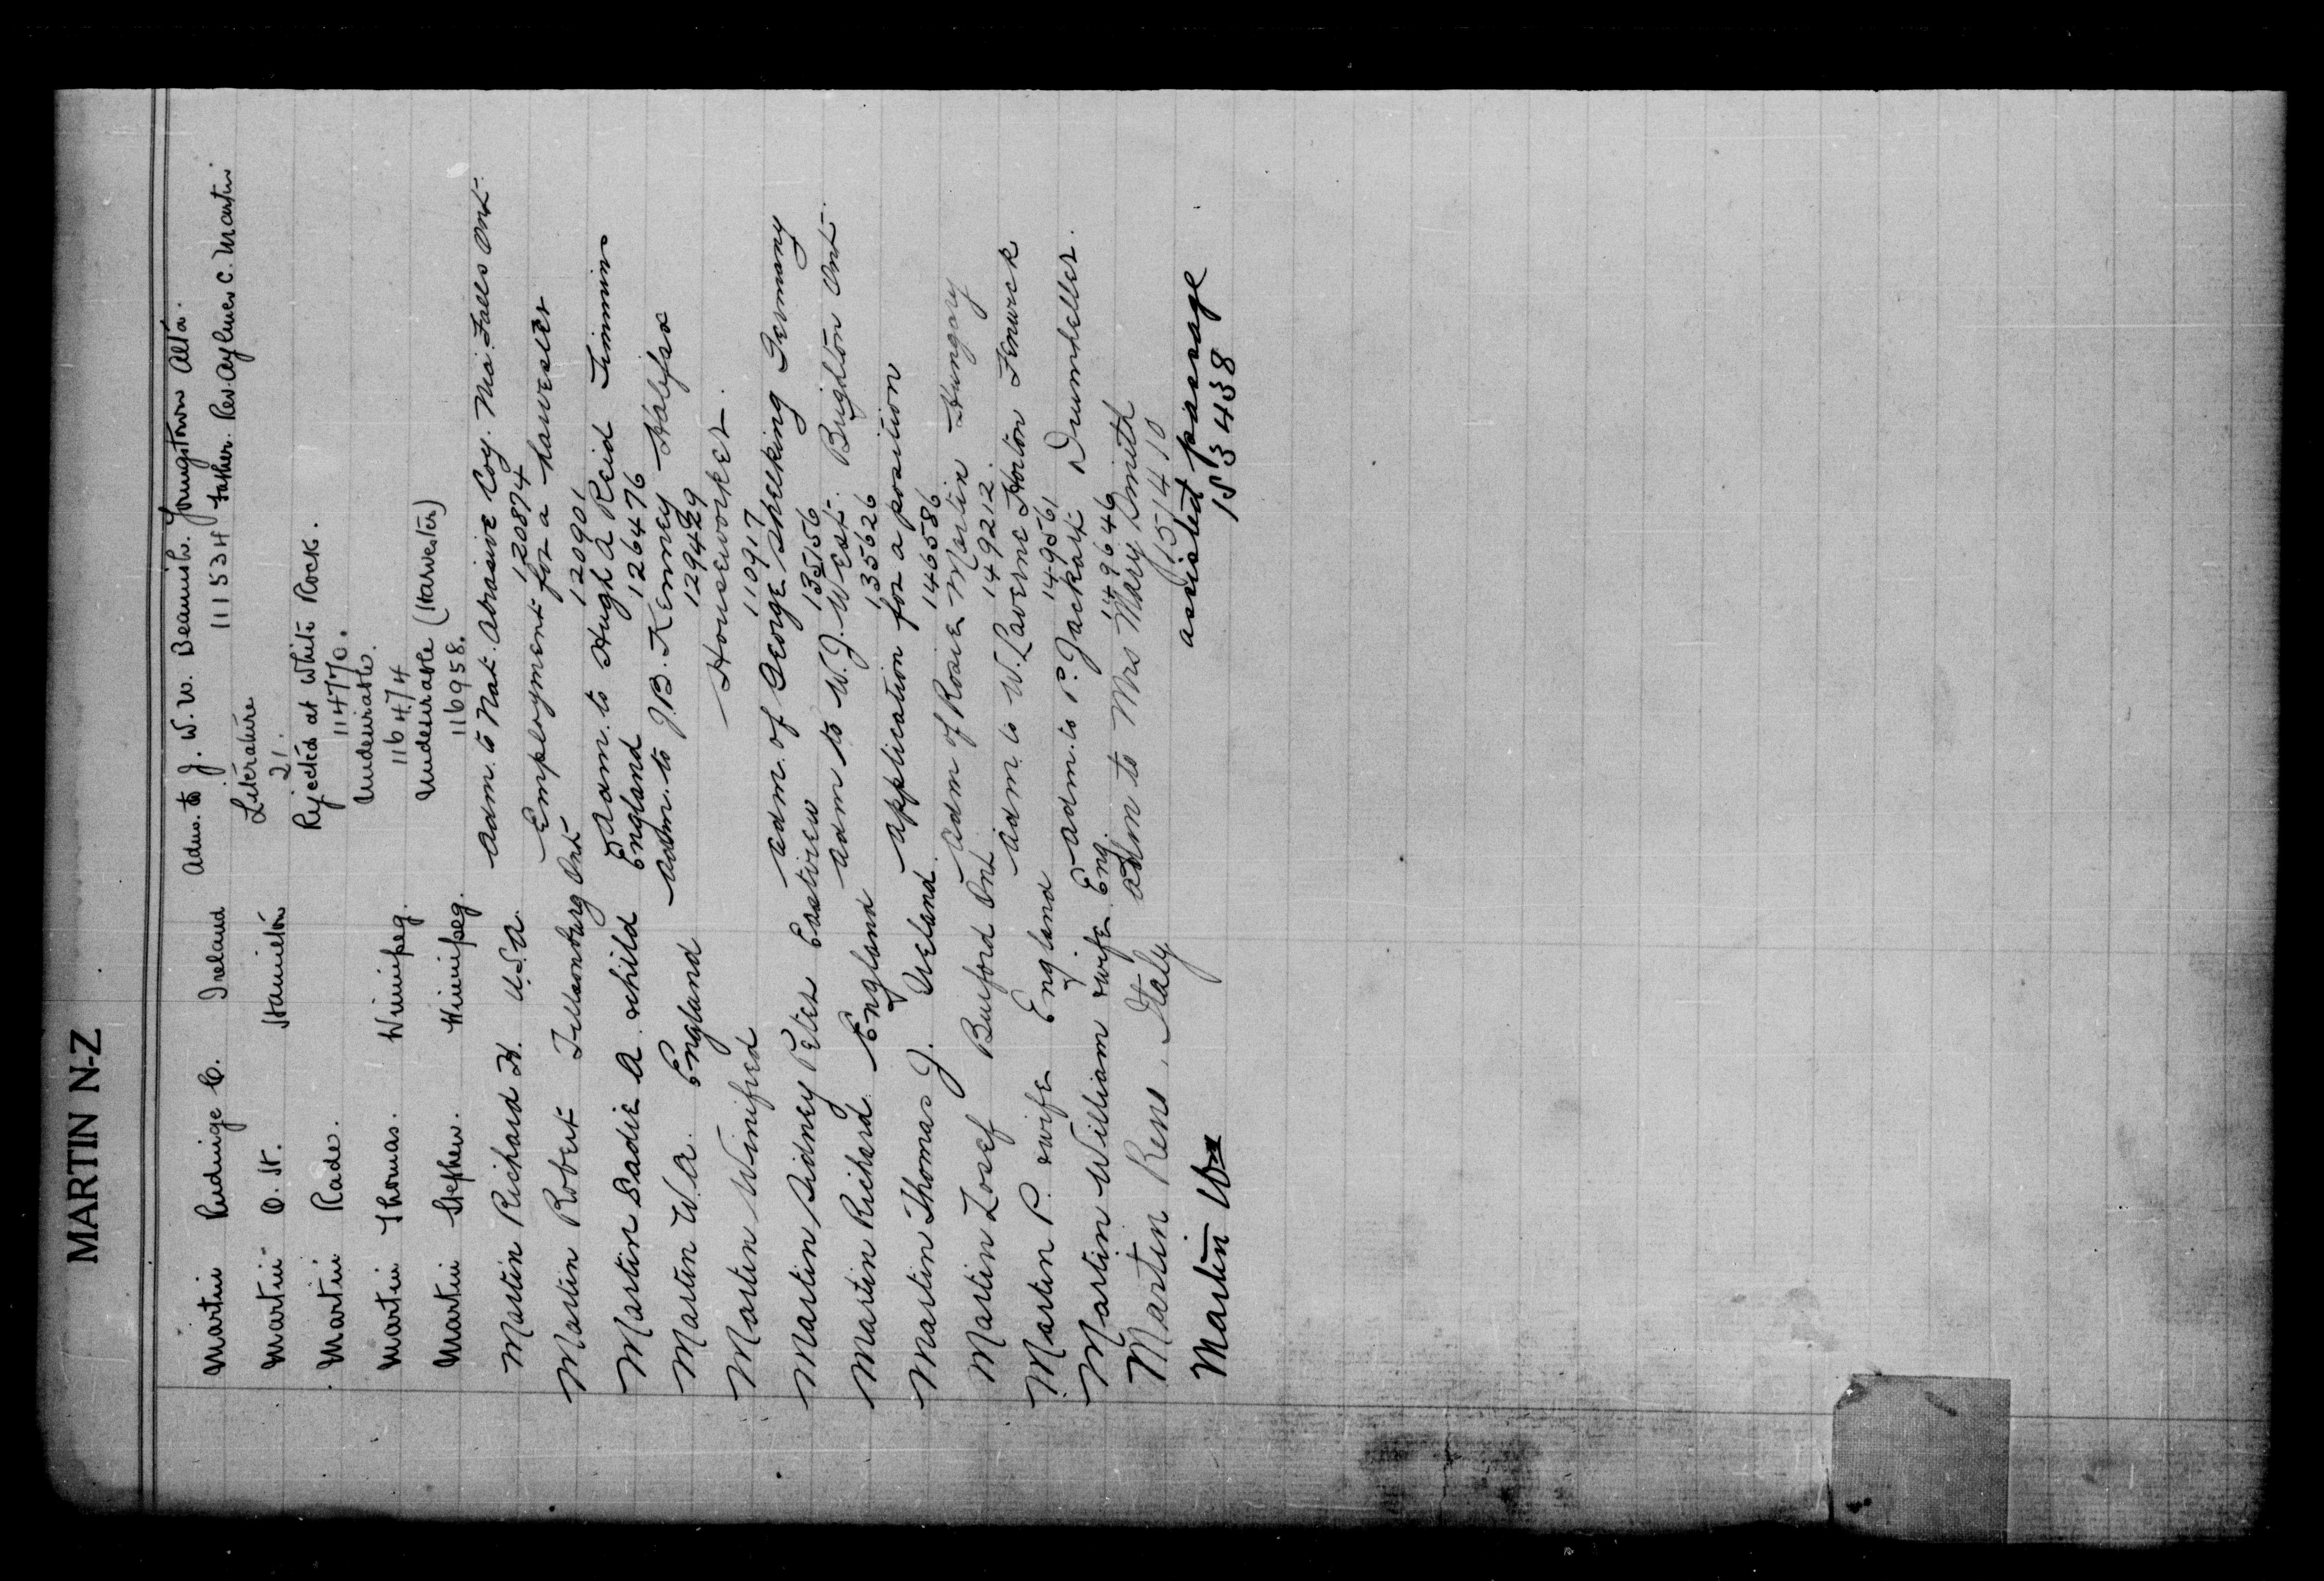 MARTIN N-Z
Martin Rudinge C. Ireland Adm. to J. W. W. Beamish. Youngstown Alta.
111534 father. Rev. Aylmer C. Martin
Martin O. St. Hamilton Literature
21.
Martin Rade. Rejected at White Rock.
114770.
Martin Thomas. Winnipeg. Undesirable.
116474
Martin Stephen. Winnipeg. Undesirable (Harvester)
116958.
Martin Richard H. U.S.A. Adm. to Nat. Abrasive Coy. Nia. Falls Ont.
120874
Martin Robert Tillsonburg Ont Employment for a harvester
120901
Martin Sadie A. & child England Adm. to Hugh A Reid Timmins
126476
Martin W.A. England Adm. to J.B. Kenney Halifax
129429
Martin Winifred Houseworker.
110917
Martin Sidney Peter Eastview Adm. of George Shelking Germany
135156
Martin Richard England Adm to W.J. West. Brighton Ont.
135626
Martin Thomas J. Ireland. Application for a position
146586
Martin Josef Burford Ont Adm of Rosie Martin Hungary
149212.
Martin P. & wife England Adm. to W. Laverne Horton Fenwick
149561
Martin William & wife Eng. Adm. to P. Jackart Drumheller.
149646
Martin Rens, Italy adm to Mrs Mary Smith
151410
Martin Wm assisted passage
153438